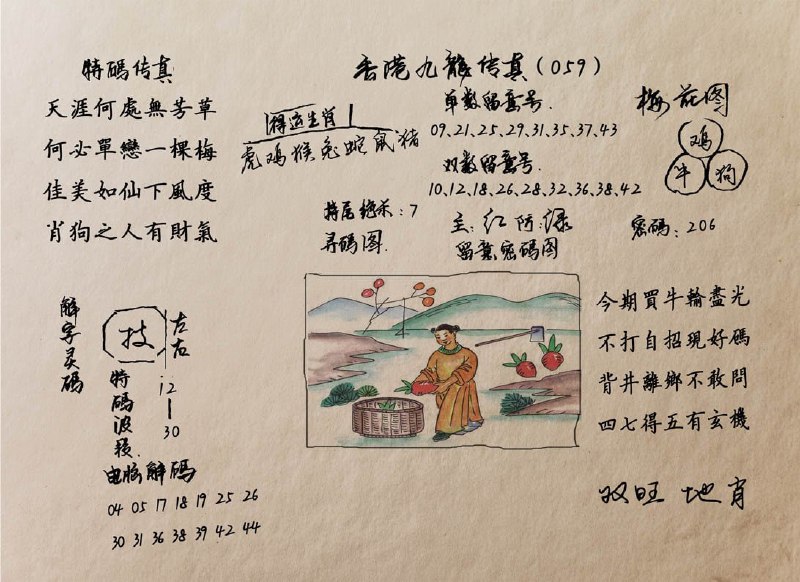 特碼传真
天涯何處無芳草
何必單戀一棵梅
佳美如仙下風度
肖狗之人有財氣
香港九龍传真(059)
得运生肖
虎鸡猴兔蛇鼠猪
单数留意号.
09,21,25,29,31,35,37,43
双数留意号.
10,12,18,26,28,32,36,38,42
梅花图
鸡
牛 狗
特尾绝杀:7
主:红防:绿
密碼:206
寻码图.
留意密码图
解字灵码
技
左右
特碼波段.
12—30
电脑解碼
04 05 17 18 19 25 26
30 31 36 38 39 42 44
今期買牛輸盡光
不打自招現好碼
背井離鄉不敢問
四七得五有玄機
双旺 地肖